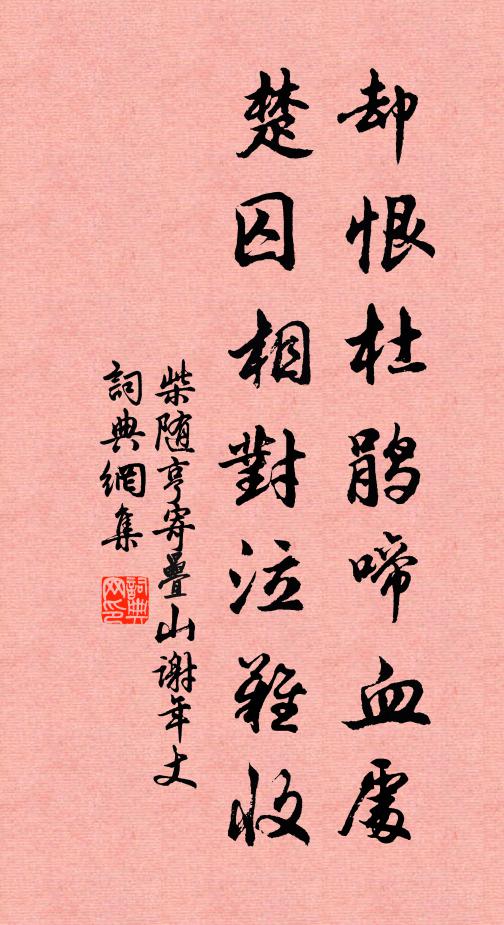 却恨杜鹃啼血處
楚囚相對泣難收
柴随亨寄疊山謝年丈
詞典網集
詞典网印